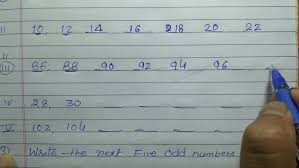 ii) 10, 12, 14 16 18 20 22
iii) 86, 88 90 92 94 96
iv 28, 30
V 102, 104
Write the next Five odd numbers